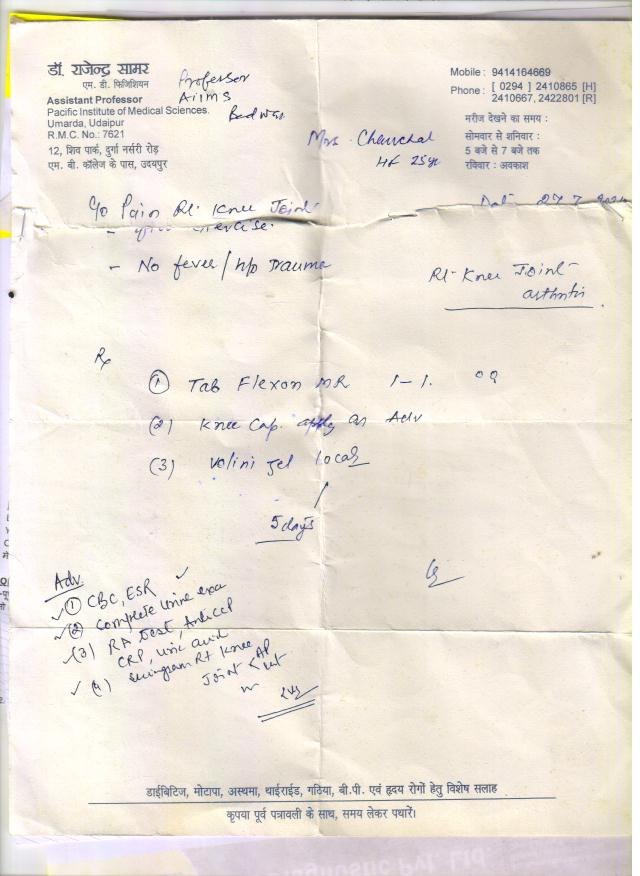 डॉ. राजेन्द्र सामर
एम. डी. फिजिशियन
Assistant Professor
Pacific Institute of Medical Sciences.
Umarda, Udaipur
R.M.C. No.: 7621
12, शिव पार्क, दुर्गा नर्सरी रोड़
एम. बी. कॉलेज के पास, उदयपुर
Professor
AIIMS
Mobile : 9414164669
Phone : [ 0294 ] 2410865 [H]
2410667, 2422801 [R]
मरीज देखने का समय :
सोमवार से शनिवार :
5 बजे से 7 बजे तक
रविवार : अवकाश
Mrs.
c/o Pain Rt. Knee Joint
exercise.
- No fever / h/o Trauma
Rt- Knee Joint-
Rx
(1) Tab Flexon MR 1-1.
(2) Knee Cap. apply as Adv
(3) Volini gel local
5 days
Adv
(1) CBC, ESR
(2) Complete urine exa
(3) RA test, Anti CCP
CRP, uric acid
(4) Rt Knee AP
Joint < Lat
डाईबिटिज, मोटापा, अस्थमा, थाईराईड, गठिया, बी.पी. एवं हृदय रोगों हेतु विशेष सलाह
कृपया पूर्व पत्रावली के साथ, समय लेकर पधारें।